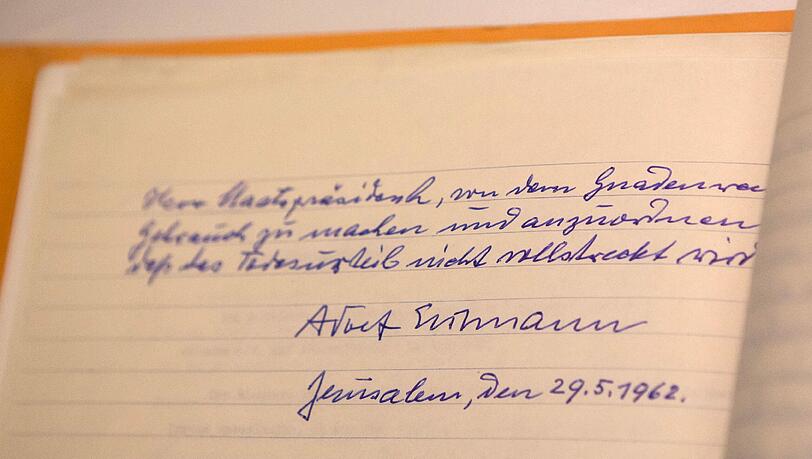 Herr Staatspräsident, von dem Gnaden
Gebrauch zu machen und anzuordnen
daß das Todesurteil nicht vollstreckt wird
Adolf Eichmann
Jerusalem, den 29.5.1962.